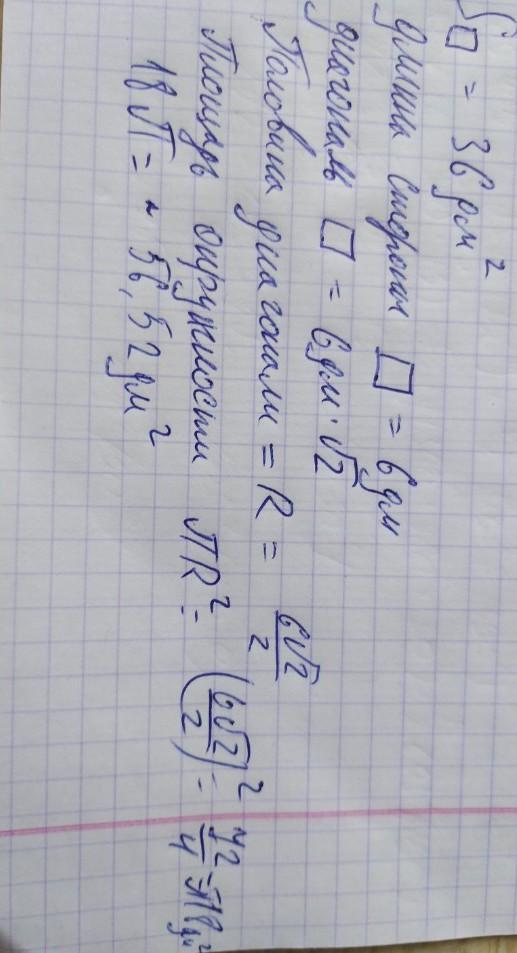 S□ = 36 дм²
длина стороны □ = 6 дм
диагональ □ = 6 дм · √2
Половина диагонали = R = 6√2/2
Площадь окружности πR² = (6√2/2)² = 72/4 = π18 дм²
18π = ~ 56,52 дм²